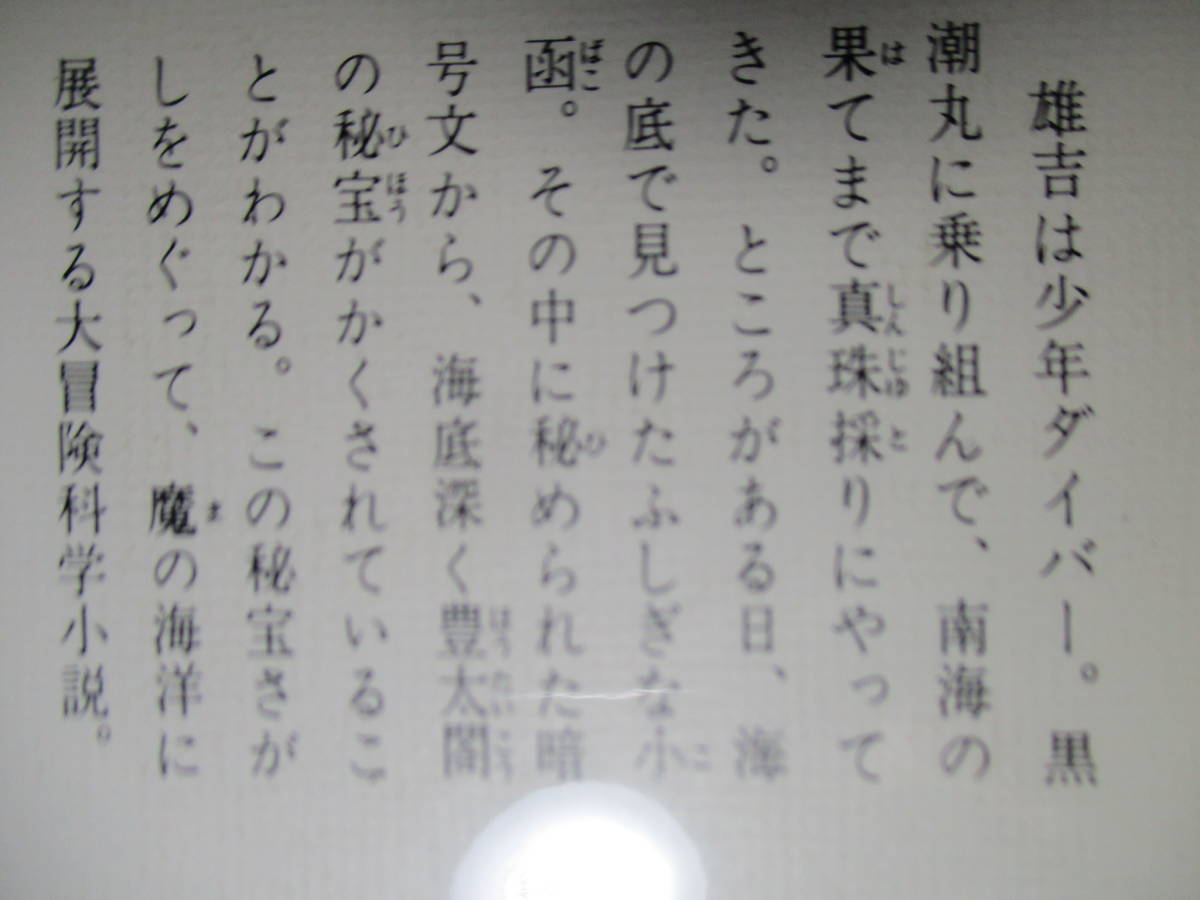 雄吉は少年ダイバー。黒
潮丸に乗り組んで、南海の
果てまで真珠採りにやって
きた。ところがある日、海
の底で見つけたふしぎな小
函。その中に秘められた暗
号文から、海底深く豊太閤
の秘宝がかくされているこ
とがわかる。この秘宝さが
しをめぐって、魔の海洋に
展開する大冒険科学小説。